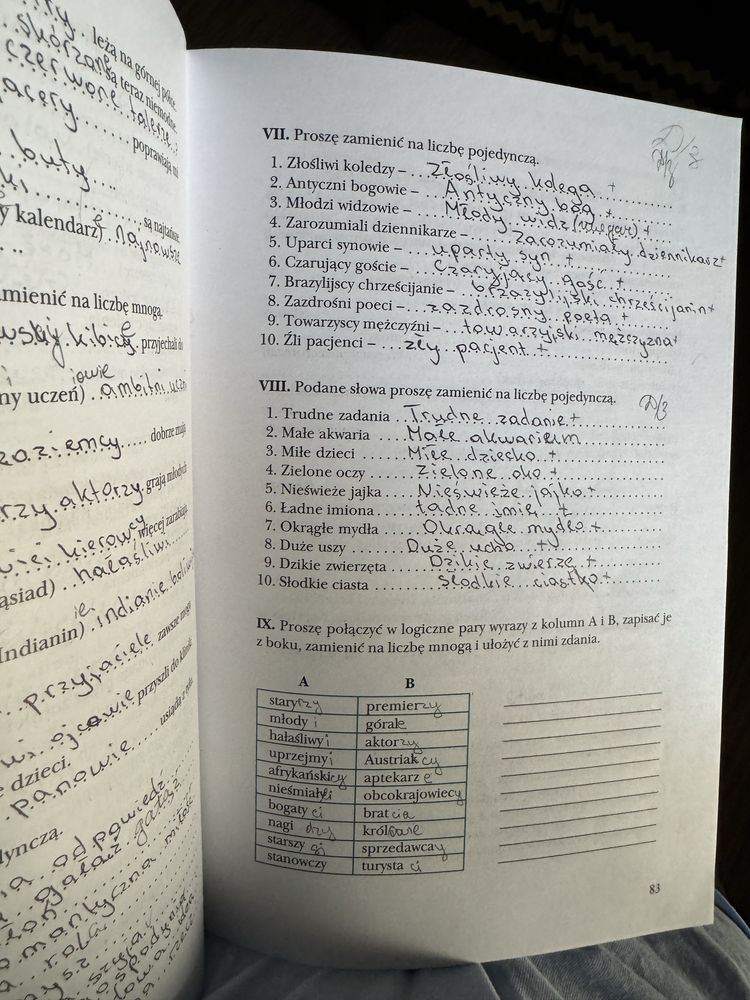 leżą na górnej półce.
są teraz niemodne.
czerwone talerze
poprawiają mi
buty
są najtańsze
y kalendarz) najnowsze
mienić na liczbę mnogą.
przyjechali do
ny uczeń) ambitni
dobrze znają
aktorzy grają młodych
kierowcy więcej zarabiają.
ąsiad) hałaśliwi
Indianin) indianie
przyjaciele zawsze mogą
ojcowie przyszli do kliniki
e dzieci.
panowie usiądą z tyłu.
dynczą.
VII. Proszę zamienić na liczbę pojedynczą.
1. Złośliwi koledzy – Złośliwy kolega +
2. Antyczni bogowie – Antyczny bóg +
3. Młodzi widzowie – Młody widz +
4. Zarozumiali dziennikarze – zarozumiały dziennikarz +
5. Uparci synowie – uparty syn +
6. Czarujący goście – Czarujący gość +
7. Brazylijscy chrześcijanie – brazylijski chrześcijanin +
8. Zazdrośni poeci – zazdrosny poeta +
9. Towarzyscy mężczyźni – towarzyjski mężczyzna +
10. Źli pacjenci – zły pacjent +
VIII. Podane słowa proszę zamienić na liczbę pojedynczą.
1. Trudne zadania Trudne zadanie +
2. Małe akwaria Małe akwarium
3. Miłe dzieci Miłe dziecko +
4. Zielone oczy Zielone oko +
5. Nieświeże jajka Nieświeże jajko +
6. Ładne imiona Ładne imię +
7. Okrągłe mydła Okrągłe mydło +
8. Duże uszy Duże ucho +
9. Dzikie zwierzęta Dzikie zwierzę +
10. Słodkie ciasta Słodkie ciastko +
IX. Proszę połączyć w logiczne pary wyrazy z kolumn A i B, zapisać je
z boku, zamienić na liczbę mnogą i ułożyć z nimi zdania.
A B
stary rzy premier zy
młody i górale
hałaśliwy i aktor zy
uprzejmy i Austriak cy
afrykański cy aptekarz e
nieśmiały li obcokrajowiec y
bogaty ci brat cia
nagi dzy król owie
starszy si sprzedawca y
stanowczy turysta ci
83